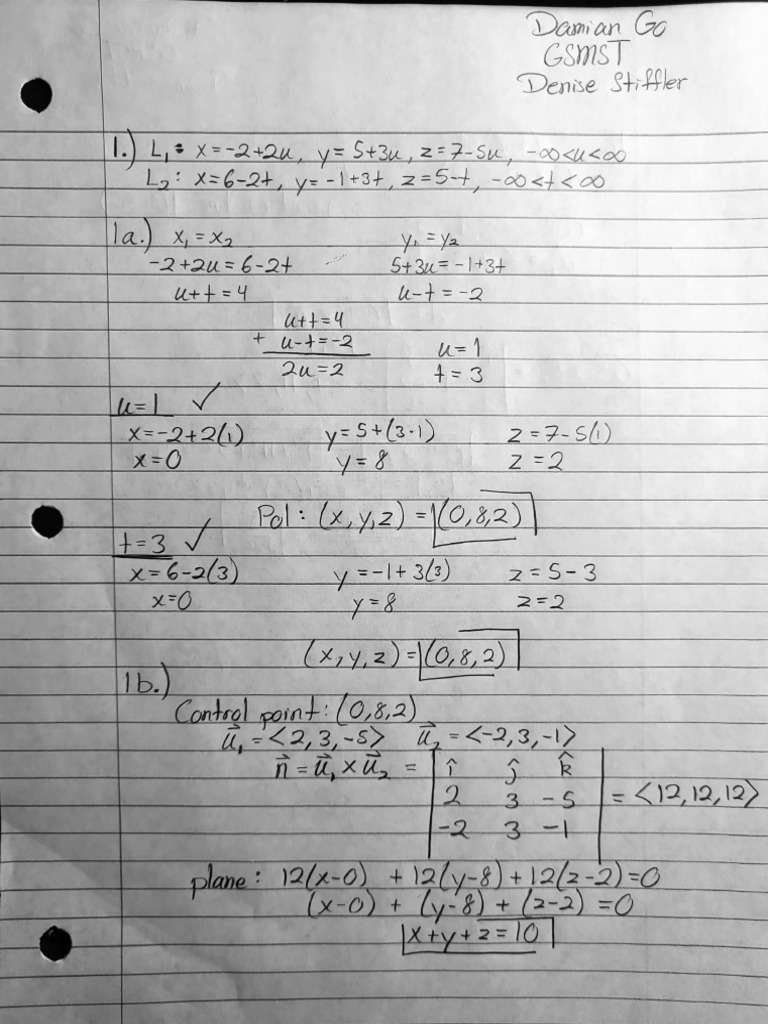 Damian Go
GSMST
Denise Stiffler
1.) L₁: x=-2+2u, y=5+3u, z=7-5u, -∞<u<∞
L₂: x=6-2t, y=-1+3t, z=5-t, -∞<t<∞
1a.) x₁=x₂ y₁=y₂
-2+2u=6-2t 5+3u=-1+3t
u+t=4 u-t=-2
u+t=4
+ u-t=-2 u=1
2u=2 t=3
u=1 ✓
x=-2+2(1) y=5+(3·1) z=7-5(1)
x=0 y=8 z=2
PoI: (x,y,z)=(0,8,2)
t=3 ✓
x=6-2(3) y=-1+3(3) z=5-3
x=0 y=8 z=2
(x,y,z)=(0,8,2)
1b.)
Control point: (0,8,2)
u⃗₁=<2,3,-5> u⃗₂=<-2,3,-1>
n⃗=u⃗₁×u⃗₂ = | î ĵ k̂ |
| 2 3 -5 | = <12,12,12>
| -2 3 -1 |
plane: 12(x-0) +12(y-8)+12(z-2)=0
(x-0) + (y-8) + (z-2) =0
x+y+z=10